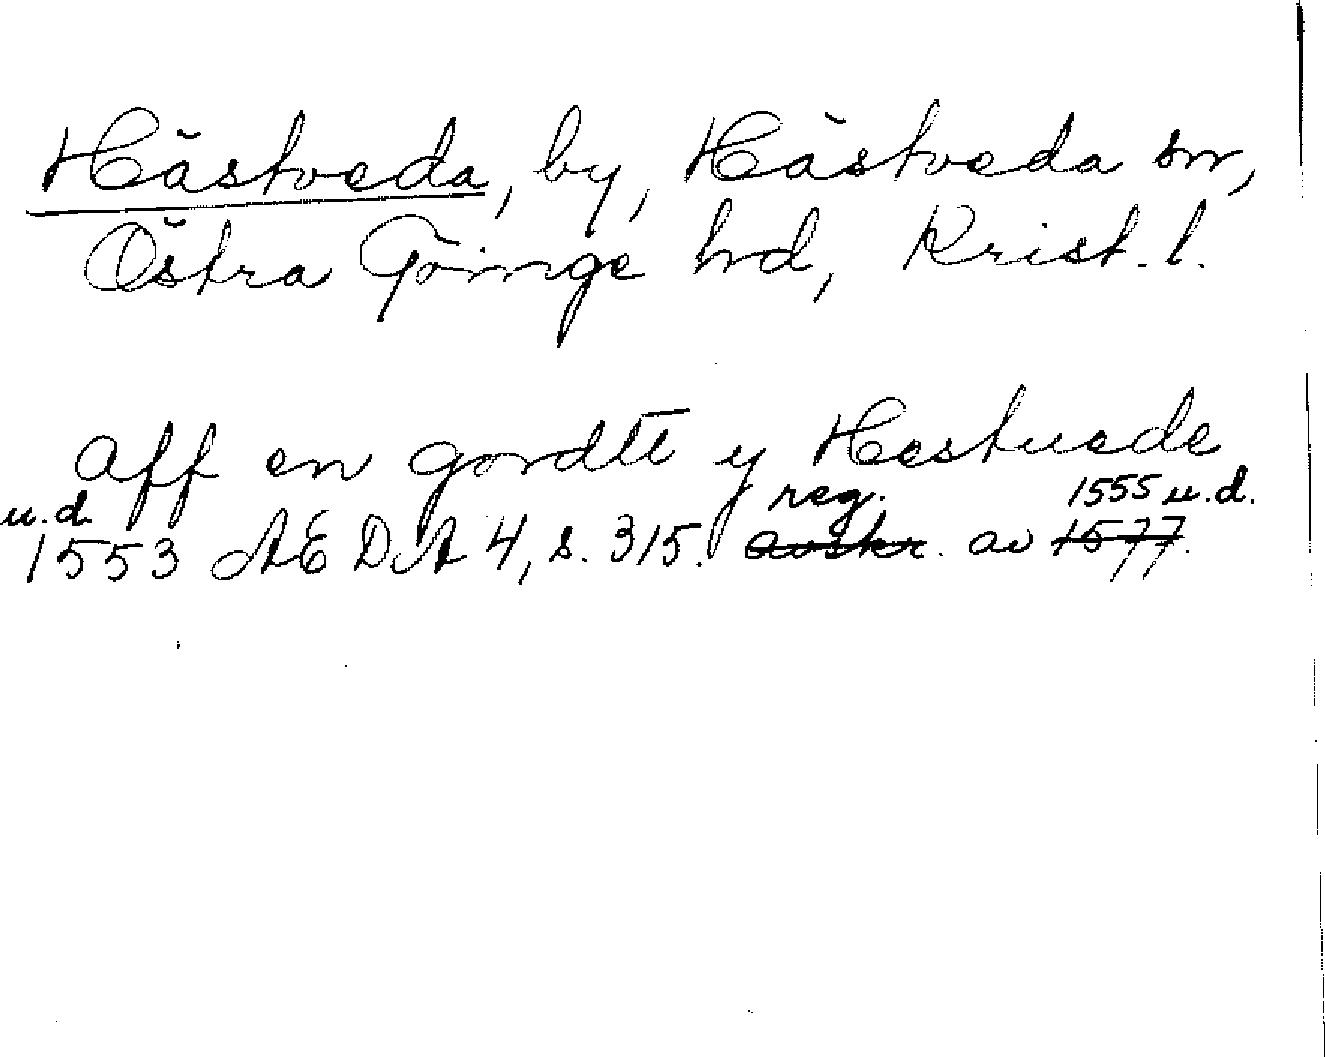 Hästveda, by, Hästveda sn,
Östra Göinge hd, Krist. l.
aff en gordtt y Hestuede
u.d. reg. 1555 u.d.
1553 AEDA 4, s. 315. avskr. av 1577.